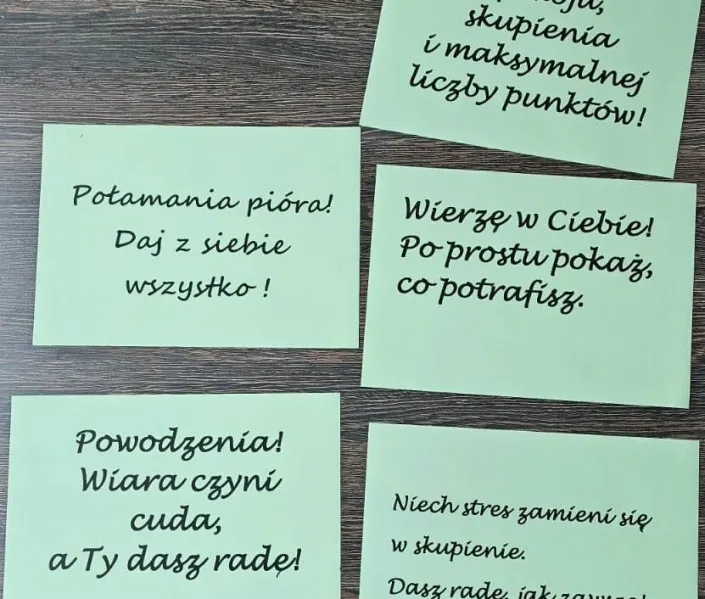 skupienia
i maksymalnej
liczby punktów!
Połamania pióra!
Daj z siebie
wszystko !
Wierzę w Ciebie!
Po prostu pokaż,
co potrafisz.
Powodzenia!
Wiara czyni
cuda,
a Ty dasz radę!
Niech stres zamieni się
w skupienie.
Dasz radę, jak zawsze!